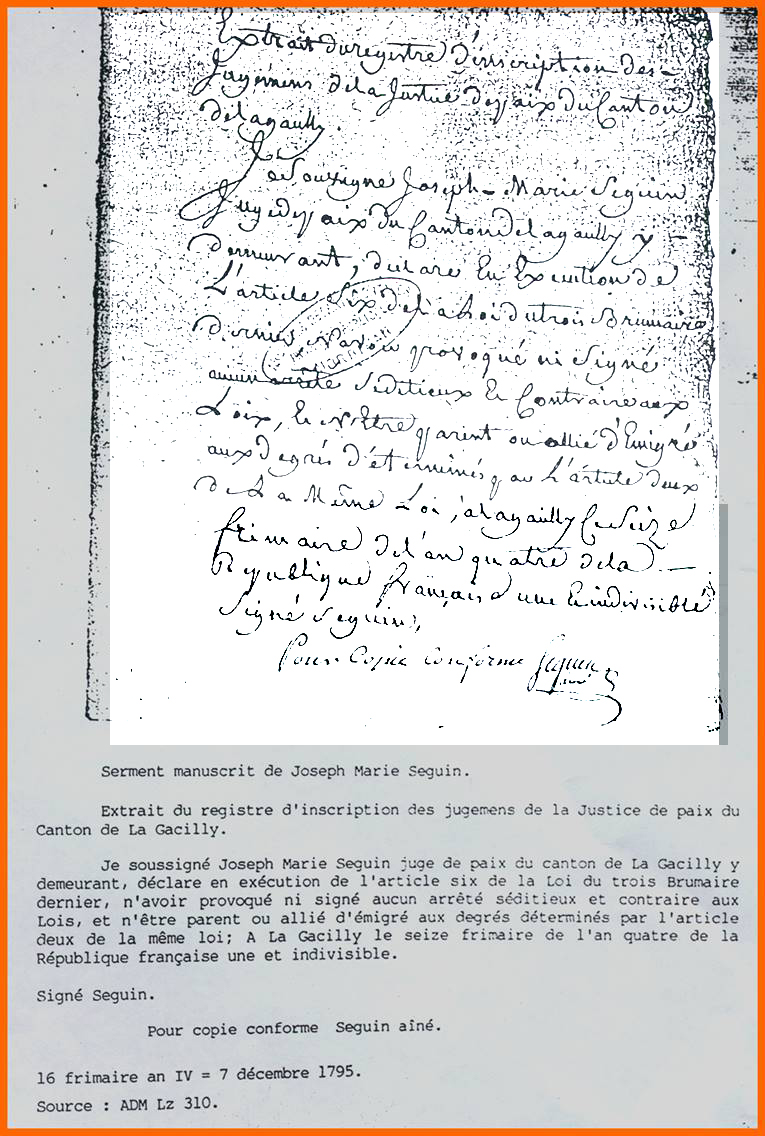 Extrait du registre d'inscription des-
Jugemens de la Justice de paix du Canton
de lagacilly.
Je Soussigné Joseph-Marie Seguin
Juge de paix du Canton de Lagacilly y -
demeurant, déclare En Execution de
L'article Six de la Loi du trois Brumaire
dernier, N'avoir provoqué ni Signé
aucun arrêté Séditieux Et Contraire aux
Loix, Et N'Etre parent ou allié d'Emigré
aux Degrés déterminés par L'article deux
De La Même Loi, a lagacilly Le Seize
frimaire de l'an quatre de la -
Republique française une Et indivisible
Signé Seguin,
Pour Copie Conforme Seguin
Serment manuscrit de Joseph Marie Seguin.
Extrait du registre d'inscription des jugemens de la Justice de paix du
Canton de La Gacilly.
Je soussigné Joseph Marie Seguin juge de paix du canton de La Gacilly y
demeurant, déclare en exécution de l'article six de la Loi du trois Brumaire
dernier, n'avoir provoqué ni signé aucun arrêté séditieux et contraire aux
Lois, et n'être parent ou allié d'émigré aux degrés déterminés par l'article
deux de la même loi; A La Gacilly le seize frimaire de l'an quatre de la
République française une et indivisible.
Signé Seguin.
Pour copie conforme Seguin aîné.
16 frimaire an IV = 7 décembre 1795.
Source : ADM Lz 310.